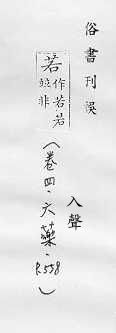 俗書刊誤
入聲
若 作若若
竝非
(卷四·六藥·P.558)